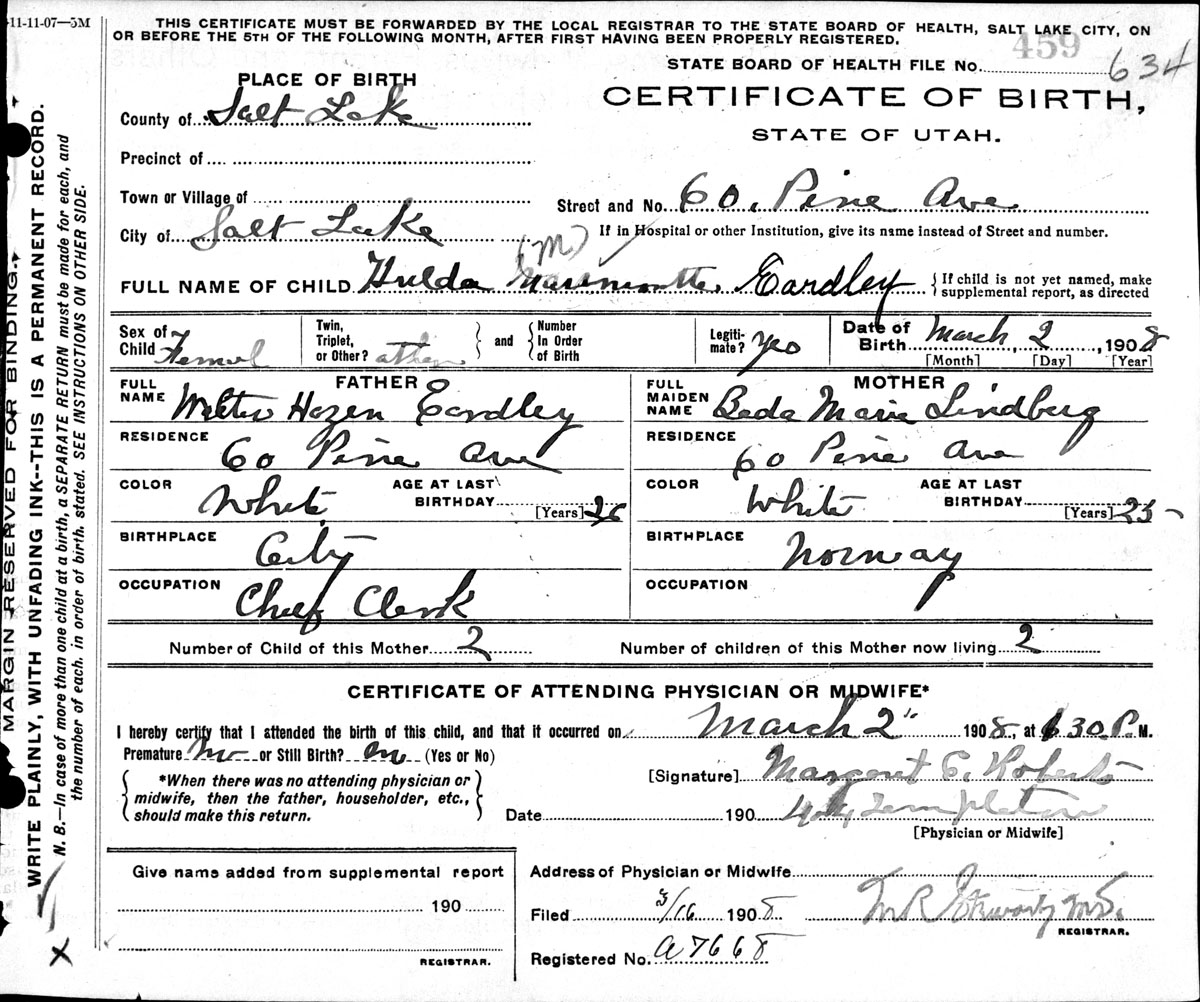 11-11-07—5M
THIS CERTIFICATE MUST BE FORWARDED BY THE LOCAL REGISTRAR TO THE STATE BOARD OF HEALTH, SALT LAKE CITY, ON
OR BEFORE THE 5TH OF THE FOLLOWING MONTH, AFTER FIRST HAVING BEEN PROPERLY REGISTERED.
459
STATE BOARD OF HEALTH FILE No. 634
PLACE OF BIRTH
CERTIFICATE OF BIRTH,
STATE OF UTAH.
County of Salt Lake
Precinct of
Town or Village of
Street and No. 60. Pine Ave
City of Salt Lake
If in Hospital or other Institution, give its name instead of Street and number.
(M)
FULL NAME OF CHILD Hulda Eardley
{If child is not yet named, make
supplemental report, as directed
Sex of Child Femal
Twin, Triplet, or Other?
and
Number In Order of Birth
Legitimate? yes
Date of Birth March, 2, 1908
[Month] [Day] [Year]
FATHER
FULL NAME Walter Hazen Eardley
RESIDENCE 60 Pine Ave
COLOR White
AGE AT LAST BIRTHDAY 26 [Years]
BIRTHPLACE City
OCCUPATION Chief Clerk
MOTHER
FULL MAIDEN NAME Beda Marie Lindberg
RESIDENCE 60 Pine Ave
COLOR White
AGE AT LAST BIRTHDAY 25 [Years]
BIRTHPLACE Norway
OCCUPATION
Number of Child of this Mother 2
Number of children of this Mother now living 2
CERTIFICATE OF ATTENDING PHYSICIAN OR MIDWIFE*
I hereby certify that I attended the birth of this child, and that it occurred on March 2 1908, at 6 30 P. M.
Premature No or Still Birth? No (Yes or No)
{*When there was no attending physician or
midwife, then the father, householder, etc.,
should make this return.}
[Signature] Margaret C. Roberts
Date 190 Templeton
[Physician or Midwife]
Give name added from supplemental report
190
REGISTRAR.
Address of Physician or Midwife
Filed 3/16 1908
REGISTRAR.
Registered No. A7668
MARGIN RESERVED FOR BINDING.
WRITE PLAINLY, WITH UNFADING INK--THIS IS A PERMANENT RECORD.
N. B.—In case of more than one child at a birth, a SEPARATE RETURN must be made for each, and
the number of each, in order of birth, stated. SEE INSTRUCTIONS ON OTHER SIDE.
X